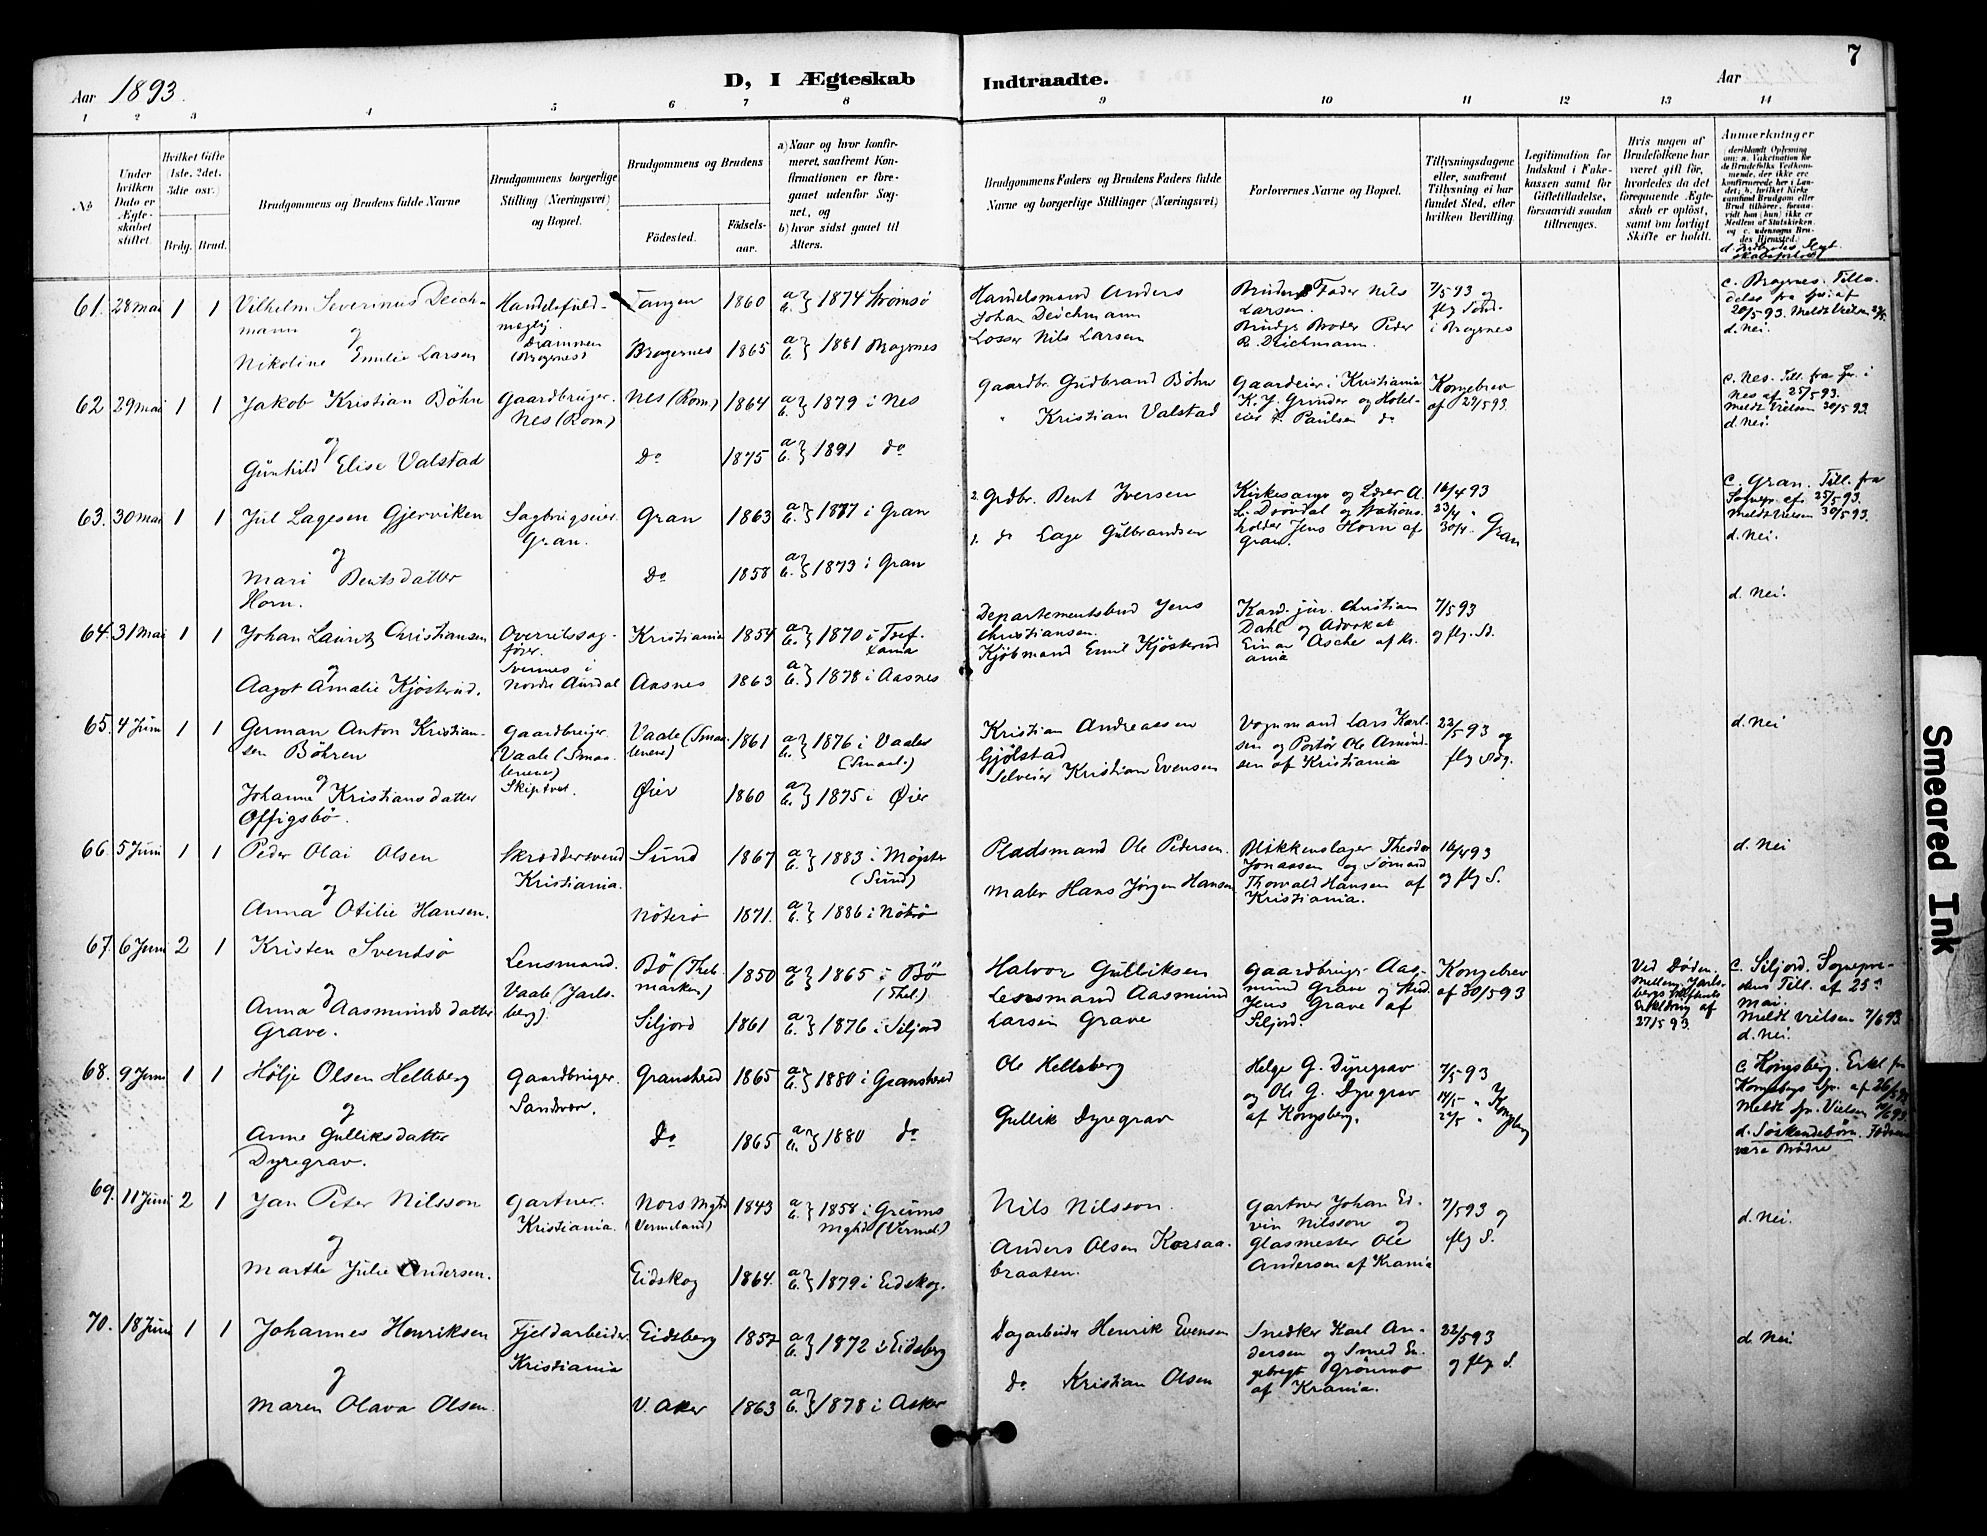 Aar 1893.
D, I Ægteskab Indtraadte.
Aar
7
1 2 3 4 5 6 7 8 9 10 11 12 13 14
№
Under hvilken Dato er Ægteskabet stiftet.
Hvilket Gifte (1ste, 2det, 3die osv.)
Brdg. Brud.
Brudgommens og Brudens fulde Navne
Brudgommens borgerlige Stilling (Næringsvei) og Bopæl.
Brudgommens og Brudens
Fødested.
Fødselsaar.
a) Naar og hvor konfirmeret, saafremt Konfirmationen er foregaaet udenfor Sognet, og
b) hvor sidst gaaet til Alters.
Brudgommens Faders og Brudens Faders fulde Navne og borgerlige Stillinger (Næringsvei)
Forlovernes Navne og Bopæl.
Tillysningsdagene eller, saafremt Tillysning ei har fundet Sted, efter hvilken Bevilling.
Legitimation for Indskud i Fakekassen samt for Giftetilladelse, forsaavidt saadan tiltrænges.
Hvis nogen af Brudefolkene har været gift før, hvorledes da det foregaaende Ægteskab er opløst, samt om lovligt Skifte er holdt.
Anmærkninger
61. 28 Mai 1 1 Vilhelm Severinus Deichmann
og
Nikoline Emilie Larsen
Drammen (Bragnes)
Tangen 1860 a b } 1874 Strømsø
Bragernes 1865 a b } 1881 Bragnes
Handelsmand Anders Johan Deichmann
Losser Nils Larsen
Brudens Fader Nils Larsen.
Brudgs Broder Peder R. Deichmann.
7/5 93 og flg Sønd. i Bragnes
d. Nei.
62 29 Mai 1 1 Jakob Kristian Bøhn
og
Gunhild Elise Valstad
Gaardbruger. Nes (Rom)
Nes (Rom) 1864 a b } 1879 i Nes
Do 1875 a b } 1891 do
Gaardbr. Gudbrand Bøhn
" Kristian Valstad
Gaardeier i Kristiania K. J. Grinder og Hoteleier P. Paulsen do
Kongebrev af 27/5 93.
c. Nes. Till. fra Spr. i Nes af 25/5 93.
Meldt Vielsen 30/5 93.
d. Nei.
63. 30 Mai 1 1 Jul Lagesen Gjerviken
og
Mari Bentsdatter Horn.
Sagbrugseier. Gran.
Gran 1863 a b } 1877 i Gran
Do 1858 a b } 1873 i Gran
2. Grdbr. Bent Iversen
1. do Lage Gulbrandsen
Kirkesanger og Lærer A. L. Døvdal og Stationsholder Jens Horn af Gran.
16/4 93
23/4 "
30/4. " Gran
c. Gran. Till. fra Sognepr. af 25/5 93.
Meldt Vielsen 30/5 93.
d. Nei.
64. 31 Mai 1 1 Johan Lauritz Christiansen
og
Aagot Amalie Kjøsterud.
Overretssagfører.
Svennes i Nordre Aurdal
Kristiania 1854 a b } 1870 i Tref.
Aasnes 1863 a b } 1878 i Aasnes
Departementsbud Jens Christiansen.
Kjøbmand Emil Kjøsterud
Kand. jur. Christian Dahl og Advokat Einar Asche af Kr.ania
7/5 93 og flg. Sd.
d. Nei.
65. 4 Juni 1 1 German Anton Kristiansen Bøhren
og
Johanne Kristiansdatter Offigsbø.
Gaardbruger (Vaale (Smaalenene) Skiptvet.
Vaale (Smaalenene) 1861 a b } 1876 i Vaaler (Smaal.)
Øier 1860 a b } 1875 i Øier
Kristian Andreassen Gjølstad
Selveier Kristian Evensen
Vognmand Lars Karlsen og Portør Ole Amundsen af Kristiania
22/5 93 og flg Sdg.
d. Nei
66. 5 Juni 1 1 Peder Olai Olsen
og
Anna Otilie Hansen.
Skræddersvend Kristiania.
Sund 1867 a b } 1883 i Møgster (Sund)
Nøterø 1871. a b } 1886 i Nøtrø
Pladsmand Ole Pedersen.
Maler Hans Jørgen Hansen
Blikkenslager Theodor Jonassen og Sømand Thorvald Hansen af Kristiania.
16/4 93 og flg S.
d. Nei
67. 6 Juni 2 1 Kristen Svendsø
og
Anna Aasmundsdatter Grave.
Lensmand. Vaale (Jarlsberg).
Bø (Thelemarken) 1850 a b } 1865 i Bø (Thel.)
Siljord 1861 a b } 1876 i Siljord
Halvor Gulliksen
Lensmand Aasmund Larsen Grave
Gaardbruger Aasmund Grave og Stud. Jens Grave af Siljord.
Kongebrev af 30/5 93
Ved Døden. Mellem Jarlsbergs Skifterets Erklæring af 27/5 93.
c. Siljord. Sogneprestens Till. af 25de Mai.
Meldt Vielsen 7/6 93.
d. Nei.
68. 9 Juni 1 1 Hølje Olsen Helleberg
og
Anne Gulliksdatter Dyregrav.
Gaardbruger. Sandsvær.
Gransherad 1865 a b } 1880 i Gransherad
Do 1865 a b } 1880 do
Ole Helleberg
Gullik Dyregrav
Helge G. Dyregrav og Ole G. Dyregrav af Kongsberg.
7/5 93
14/5 "
22/5 " Kongsberg
c. Kongsberg. Erkl. fra Kongsbergs Spr. af 26/5 93
Meldt Spr. Vielsen 10/6 93.
d. Søskendebørn. Fædrene vare Brødre
69. 11 Juni 2 1 Jan Peter Nilsson
og
Marthe Julie Andersen.
Gartner. Kristiania.
Nors Mghd (Vermeland) 1843 a b } 1858 i Grums Mghd (Vermel.)
Eidskog 1864. a b } 1879 i Eidskog.
Nils Nilsson
Anders Olsen Korsaabraaten.
Gartner Johan Edvin Nilsson og Glasmester Ole Andersen af Krania
7/5 93 og flg S.
d. Nei.
70. 18 Juni 1 1 Johannes Henriksen
og
Maren Olava Olsen.
Fjeldarbeider. Kristiania
Eidsberg 1857 a b } 1872 i Eidsberg
V. Aker 1863 a b } 1878 i Asker
Dagarbeider Henrik Evensen
Do Kristian Olsen
Snedker Karl Andersen og Smed Engebregt Grønmo af Krania.
22/5 93 og flg S.
d. Nei
Smeared Ink